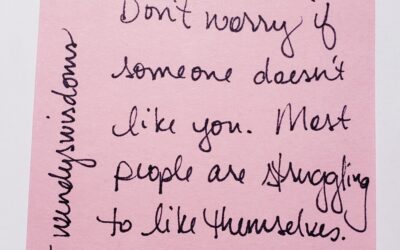 Don't worry if
someone doesn't
like you. Most
people are struggling
to like themselves.
wendyswisdoms